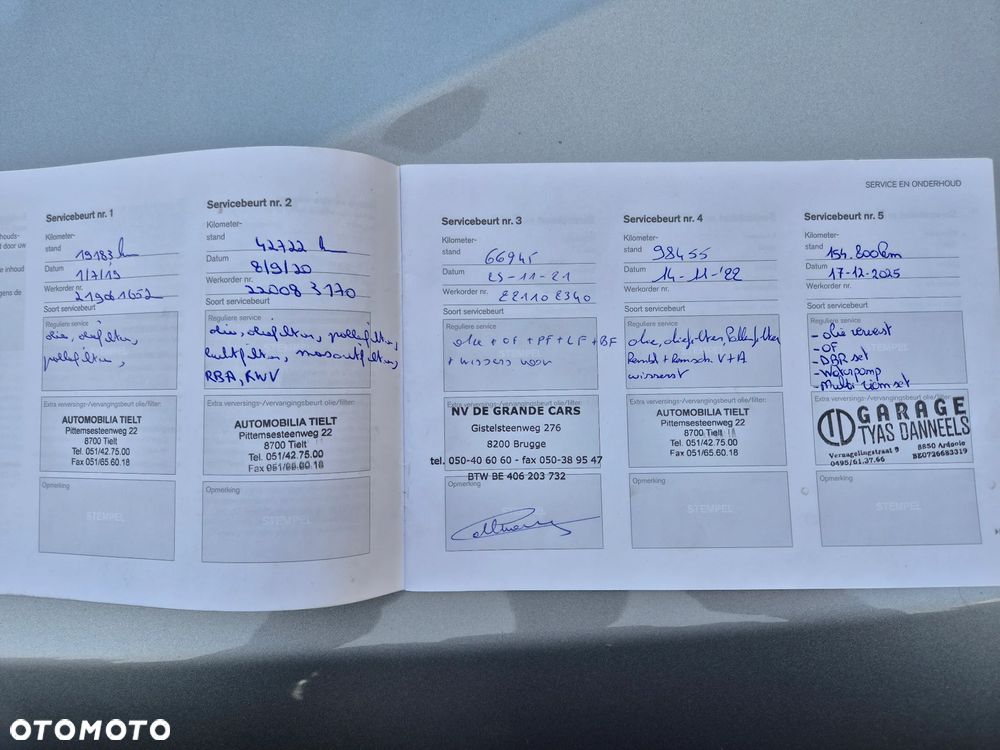 SERVICE EN ONDERHOUD
Servicebeurt nr. 1
Kilometer-
stand
19183 km
Datum
1/7/19
Werkorder nr.
21901652
Soort servicebeurt
Reguliere service
olie, oliefilter,
pollefilter,
Extra verversings-/vervangingsbeurt olie/filter:
AUTOMOBILIA TIELT
Pittemsesteenweg 22
8700 Tielt
Tel. 051/42.75.00
Fax 051/65.60.18
Opmerking
STEMPEL
Servicebeurt nr. 2
Kilometer-
stand
42722 km
Datum
8/9/20
Werkorder nr.
220083170
Soort servicebeurt
Reguliere service
olie, oliefilter, pollefilter,
luchtfilter, mazoutfilter,
RBA, RWV
Extra verversings-/vervangingsbeurt olie/filter:
AUTOMOBILIA TIELT
Pittemsesteenweg 22
8700 Tielt
Tel. 051/42.75.00
Fax 051/65.60.18
Opmerking
STEMPEL
Servicebeurt nr. 3
Kilometer-
stand
66945
Datum
25-11-21
Werkorder nr.
Soort servicebeurt
Reguliere service
olie + OF + PF + LF + BF
+ wissers voor
Extra verversings-/vervangingsbeurt olie/filter:
NV DE GRANDE CARS
Gistelsteenweg 276
8200 Brugge
tel. 050-40 60 60 - fax 050-38 95 47
BTW BE 406 203 732
Opmerking
Servicebeurt nr. 4
Kilometer-
stand
98455
Datum
14-11-'22
Werkorder nr.
Soort servicebeurt
Reguliere service
olie, oliefilter, Pollenfilter
Rembl + Remsch. V+A
wisserst
Extra verversings-/vervangingsbeurt olie/filter:
AUTOMOBILIA TIELT
Pittemsesteenweg 22
8700 Tielt
Tel. 051/42.75.00
Fax 051/65.60.18
Opmerking
STEMPEL
Servicebeurt nr. 5
Kilometer-
stand
154.800km
Datum
17-12-2025
Werkorder nr.
Soort servicebeurt
Reguliere service
- olie ververst
- OF
- DBR set
- Waterpomp
- Multi riem set
Extra verversings-/vervangingsbeurt olie/filter:
TD GARAGE
TYAS DANNEELS
8850 Ardooie
0495/61.37.66
BE0726683319
Opmerking
STEMPEL
OTOMOTO